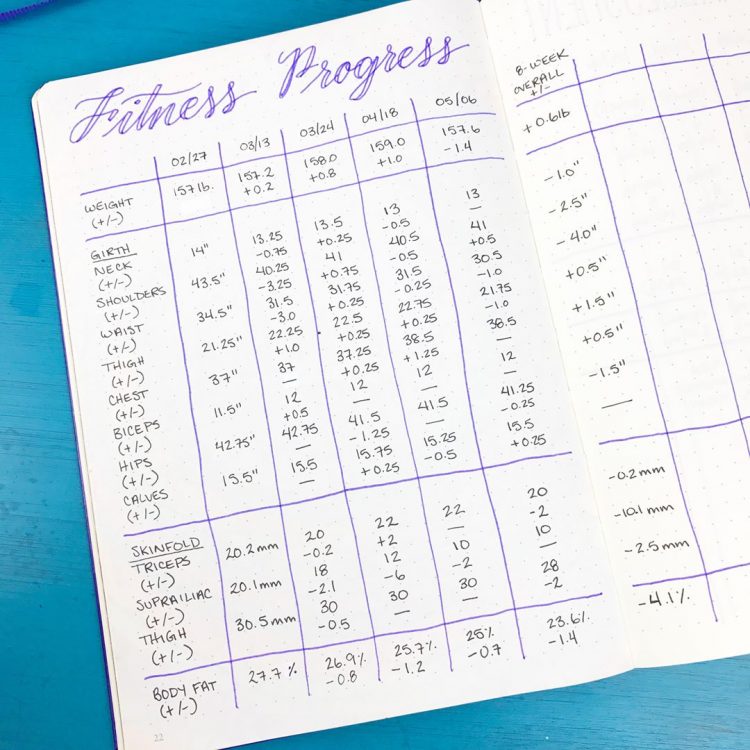 Fitness Progress
02/27 03/13 03/24 04/18 05/06 8-WEEK
OVERALL
+/-
WEIGHT 157 lb. 157.2 158.0 159.0 157.6 +0.6lb
(+/-) +0.2 +0.8 +1.0 -1.4
GIRTH
NECK 14" 13.25 13.5 13 13 -1.0"
(+/-) -0.75 +0.25 -0.5 —
SHOULDERS 43.5" 40.25 41 40.5 41 -2.5"
(+/-) -3.25 +0.75 -0.5 +0.5
WAIST 34.5" 31.5 31.75 31.5 30.5 -4.0"
(+/-) -3.0 +0.25 -0.25 -1.0
THIGH 21.25" 22.25 22.5 22.75 21.75 +0.5"
(+/-) +1.0 +0.25 +0.25 -1.0
CHEST 37" 37 37.25 38.5 38.5 +1.5"
(+/-) — +0.25 +1.25 —
BICEPS 11.5" 12 12 12 12 +0.5"
(+/-) +0.5 — — —
HIPS 42.75" 42.75 41.5 41.5 41.25 -1.5"
(+/-) — -1.25 — -0.25
CALVES 15.5" 15.5 15.75 15.25 15.5 —
(+/-) — +0.25 -0.5 +0.25
SKINFOLD
TRICEPS 20.2mm 20 22 22 20 -0.2mm
(+/-) -0.2 +2 — -2
SUPRAILIAC 20.1mm 18 12 10 10 -10.1mm
(+/-) -2.1 -6 -2 —
THIGH 30.5mm 30 30 30 28 -2.5mm
(+/-) -0.5 — — -2
BODY FAT 27.7% 26.9% 25.7% 25% 23.6% -4.1%
(+/-) -0.8 -1.2 -0.7 -1.4
22